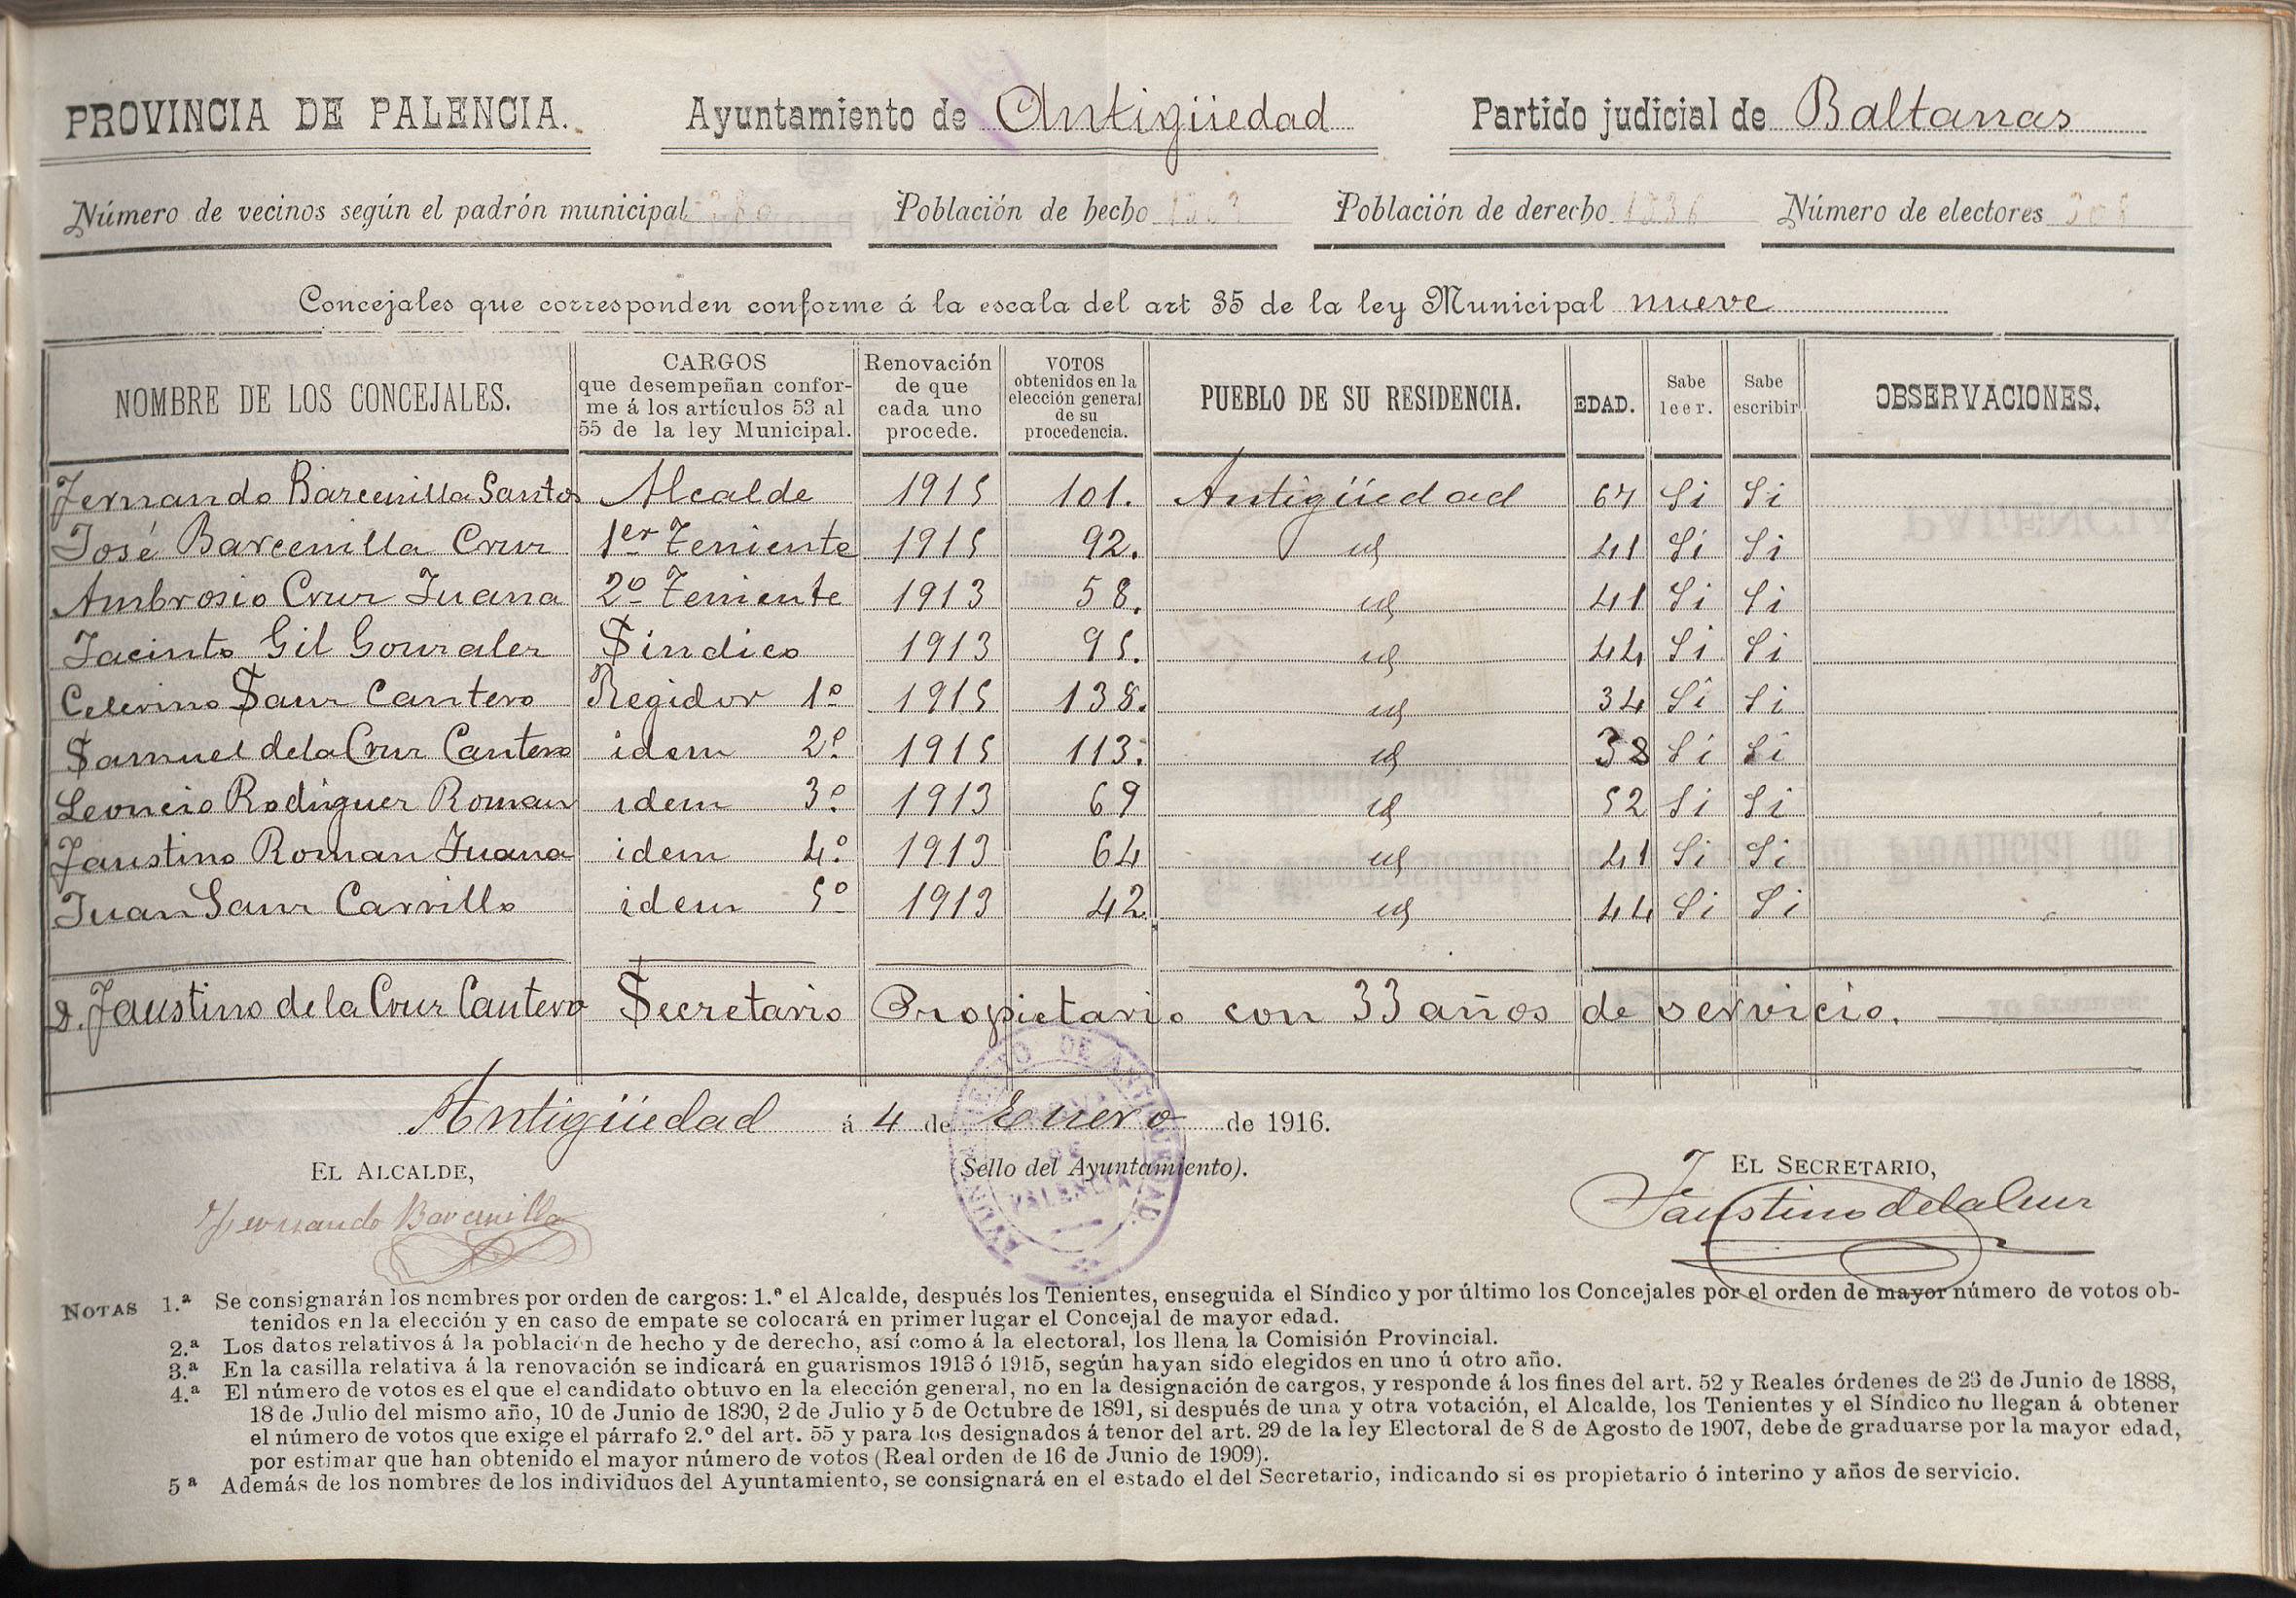 PROVINCIA DE PALENCIA. Ayuntamiento de Antigüedad Partido judicial de Baltanas
Número de vecinos según el padrón municipal Población de hecho Población de derecho 1236 Número de electores
Concejales que corresponden conforme á la escala del art 35 de la ley Municipal nueve
NOMBRE DE LOS CONCEJALES. CARGOS que desempeñan conforme á los artículos 53 al 55 de la ley Municipal. Renovación de que cada uno procede. VOTOS obtenidos en la elección general de su procedencia. PUEBLO DE SU RESIDENCIA. EDAD. Sabe leer. Sabe escribir OBSERVACIONES.
Fernando Barcenilla Santos Alcalde 1915 101. Antigüedad 67 Si Si
José Barcenilla Cruz 1er Teniente 1915 92. id 41 Si Si
Ambrosio Cruz Juana 2º Teniente 1913 58. id 41 Si Si
Jacinto Gil Gonzalez Sindico 1913 95. id 44 Si Si
Celerino Sanz Cantero Regidor 1º 1915 138. id 34 Si Si
Samuel de la Cruz Cantero idem 2º 1915 113. id 38 Si Si
Leoncio Rodriguez Roman idem 3º 1913 69 id 52 Si Si
Faustino Roman Juana idem 4º 1913 64 id 41 Si Si
Juan Sanz Carrillo idem 5º 1913 42 id 44 Si Si
D. Faustino de la Cruz Cantero Secretario Propietario con 33 años de servicio.
Antigüedad á 4 de Enero de 1916.
EL ALCALDE, (Sello del Ayuntamiento). EL SECRETARIO,
Fernando Barcenilla Faustino de la Cruz
AYUNTAMIENTO DE ANTIGÜEDAD. PALENCIA
NOTAS 1.ª Se consignarán los nombres por orden de cargos: 1.º el Alcalde, después los Tenientes, enseguida el Síndico y por último los Concejales por el orden de mayor número de votos ob-
tenidos en la elección y en caso de empate se colocará en primer lugar el Concejal de mayor edad.
2.ª Los datos relativos á la población de hecho y de derecho, así como á la electoral, los llena la Comisión Provincial.
3.ª En la casilla relativa á la renovación se indicará en guarismos 1913 ó 1915, según hayan sido elegidos en uno ú otro año.
4.ª El número de votos es el que el candidato obtuvo en la elección general, no en la designación de cargos, y responde á los fines del art. 52 y Reales órdenes de 26 de Junio de 1888,
18 de Julio del mismo año, 10 de Junio de 1890, 2 de Julio y 5 de Octubre de 1891, si después de una y otra votación, el Alcalde, los Tenientes y el Síndico no llegan á obtener
el número de votos que exige el párrafo 2.º del art. 55 y para los designados á tenor del art. 29 de la ley Electoral de 8 de Agosto de 1907, debe de graduarse por la mayor edad,
por estimar que han obtenido el mayor número de votos (Real orden de 16 de Junio de 1909).
5ª Además de los nombres de los individuos del Ayuntamiento, se consignará en el estado el del Secretario, indicando si es propietario ó interino y años de servicio.